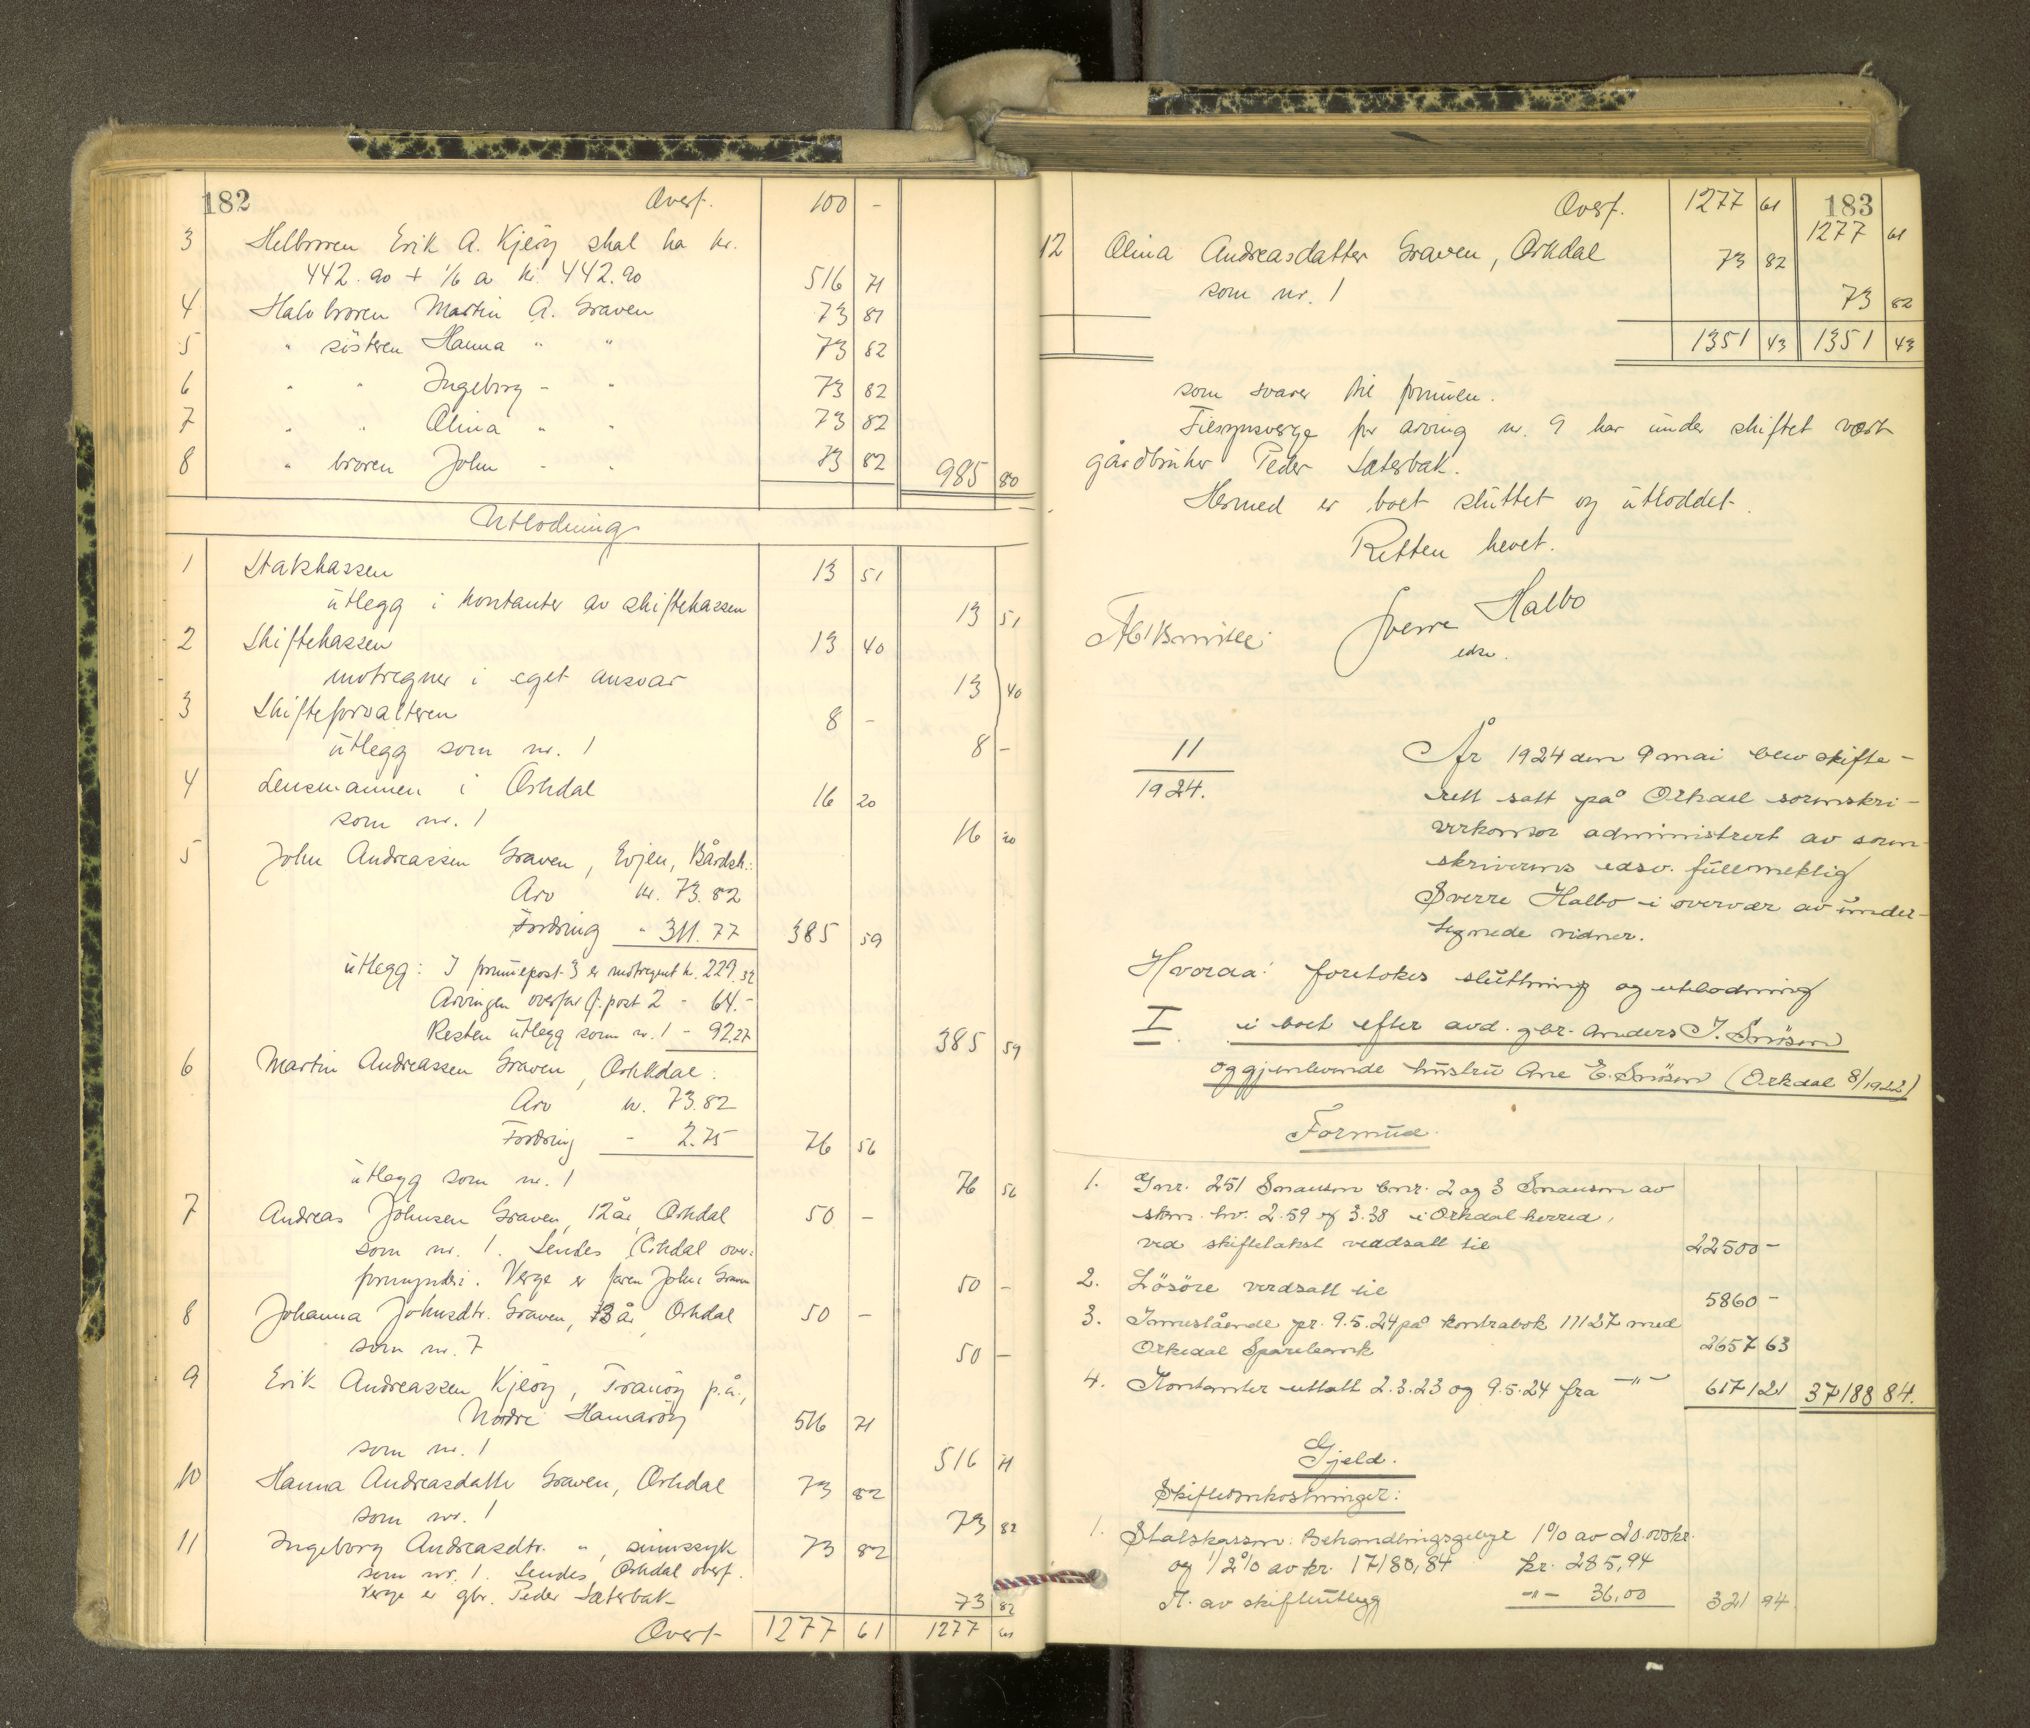 182 Overf. 100 -
3 Helbroren Erik A. Kjeøy skal ha kr.
442.90 + 1/6 a kr. 442.90 516 71
4 Halvbroren Martin A. Graven 73 81
5 " søsteren Hanna " " 73 82
6 " " Ingeborg - " 73 82
7 " " Olina " " 73 82
8 " broren John - " 73 82 985 80
Utlodning
1 Statskassen 13 51
utlegg i kontanter av skiftekassen 13 51
2 Skiftekassen 13 40
motregner i eget ansvar 13 40
3 Skifteforvalteren 8 -
utlegg som nr. 1 8 -
4 Lensmannen i Orkdal 16 20
som nr. 1 16 20
5 John Andreassen Graven, Evjen, Bårdsh.:
Arv kr. 73.82
Fordring " 311.77 385 59
utlegg: I formuepost 3 er motregnet kr. 229.32
Arvingen overtar f. post 2 - 64.-
Resten utlegg som nr. 1 - 92.27 385 59
6 Martin Andreassen Graven, Orkdal:
Arv kr. 73.82
Fordring - 2.75 76 56
utlegg som nr. 1 76 56
7 Andreas Johnsen Graven, 12 år, Orkdal 50 -
som nr. 1. Sendes Orkdal over-
formynderi. Verge er faren John Graven 50 -
8 Johanna Johnsdtr. Graven, 13 år, Orkdal 50 -
som nr. 7 50 -
9 Erik Andreassen Kjeøy, Tranøy p.å.,
Nordre Hamarøy 516 71
som nr. 1 516 71
10 Hanna Andreasdatter Graven, Orkdal 73 82
som nr. 1 73 82
11 Ingeborg Andreasdtr. ", sinnssyk 73 82
som nr. 1. Sendes Orkdal overf.
Verge er gbr. Peder Sæterbak 73 82
Overf. 1277 61 1277 61
Overf. 1277 61 183
1277 61
12 Olina Andreasdatter Graven, Orkdal 73 82
som nr. 1 73 82
1351 43 1351 43
som svarer til formuen.
Tilsynsverge for arving nr. 9 har under skiftet vært
gårdbruker Peder Sæterbak.
Hermed er boet sluttet og utloddet.
Retten hevet.
Sverre Halbo
edsv.
11
1924.
År 1924 den 9 mai blev skifte-
rett satt på Orkdal sorenskri-
verkontor administrert av soren-
skriverens edsv. fullmektig
Sverre Halbo i overvær av under-
tegnede vidner.
Hvoraa: foretokes slutning og utlodning
I i boet efter avd. gbr. Anders J. Snøsen
og gjenlevende hustru Ane E. Snøsen (Orkdal 8/1922)
Formue.
1. Gnr. 251 Snausen bnr. 2 og 3 Snausen av
skm. hv. 2.59 og 3.38 i Orkdal herred,
ved skiftetakst verdsatt til 22500 -
2. Løsøre verdsatt til 5860 -
3. Innestående pr. 9.5.24 på kontrabok 11127 med
Orkedal Sparebank 2657 63
4. Kontanter uttatt 2.3.23 og 9.5.24 fra -"- 6171 21 37188 84.
Gjeld.
Skifteomkostninger:
1. Statskassen: Behandlingsgebyr 1% av 20.000 kr.
og 1/2% av kr. 17180,84 kr. 285,94
Do. av skifteutlegg -"- 36,00 321 94